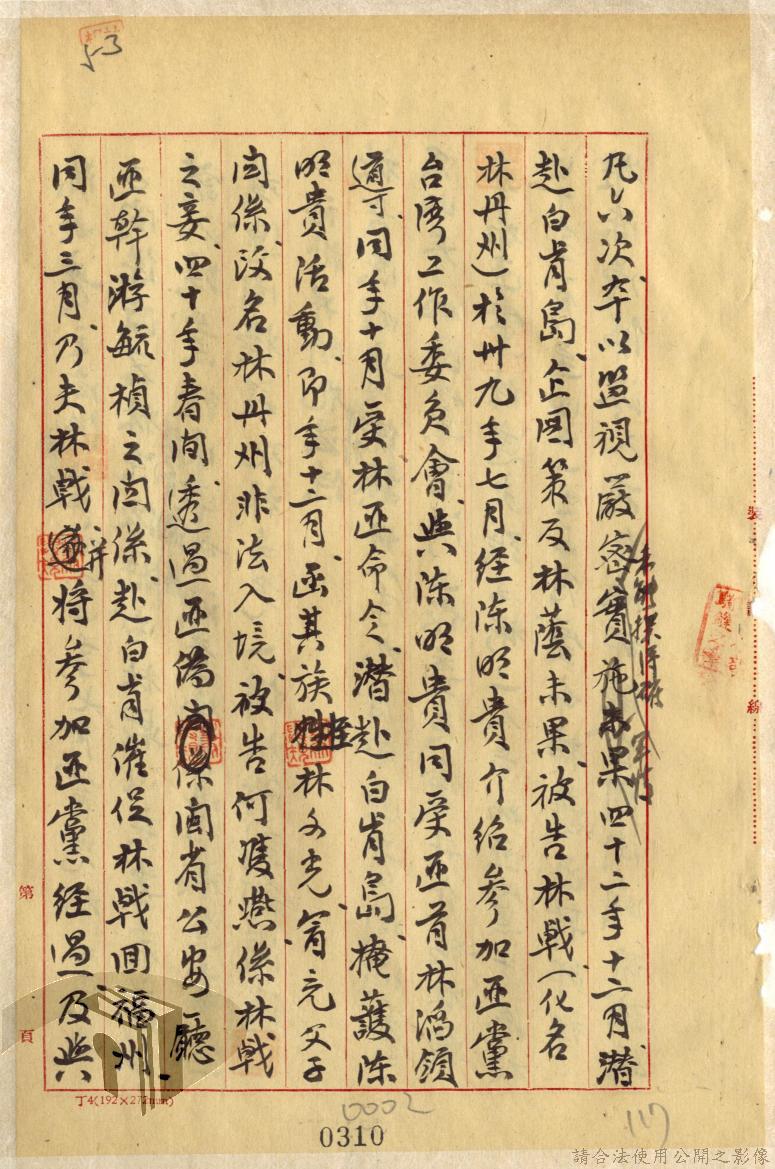 凡六次、卒以監視嚴密實施未果四十二年十二月潛
未能探得
赴白肯島、企圖策反林蔭未果、被告林戟(化名
林丹州)於卅九年七月、經陳明貴介紹參加匪黨
台灣工作委員會、與陳明貴同受匪首林滔領
導、同年十月受林匪命令、潛赴白肯島、掩護陳
明貴活動、即年十二月、函其族侄林文光、冒充父子
關係、改名林丹州非法入境、被告何慶燕係林戟
之妻、四十年春間、透過匪偽閩省公安廳
匪幹游毓楨之關係、赴白肯催促林戟回福州、
同年三月、乃夫林戟並將參加匪黨經過及與
裝
線
第
頁
丁4(192×272mm)
0002
0310
117
53
請合法使用公開之影像